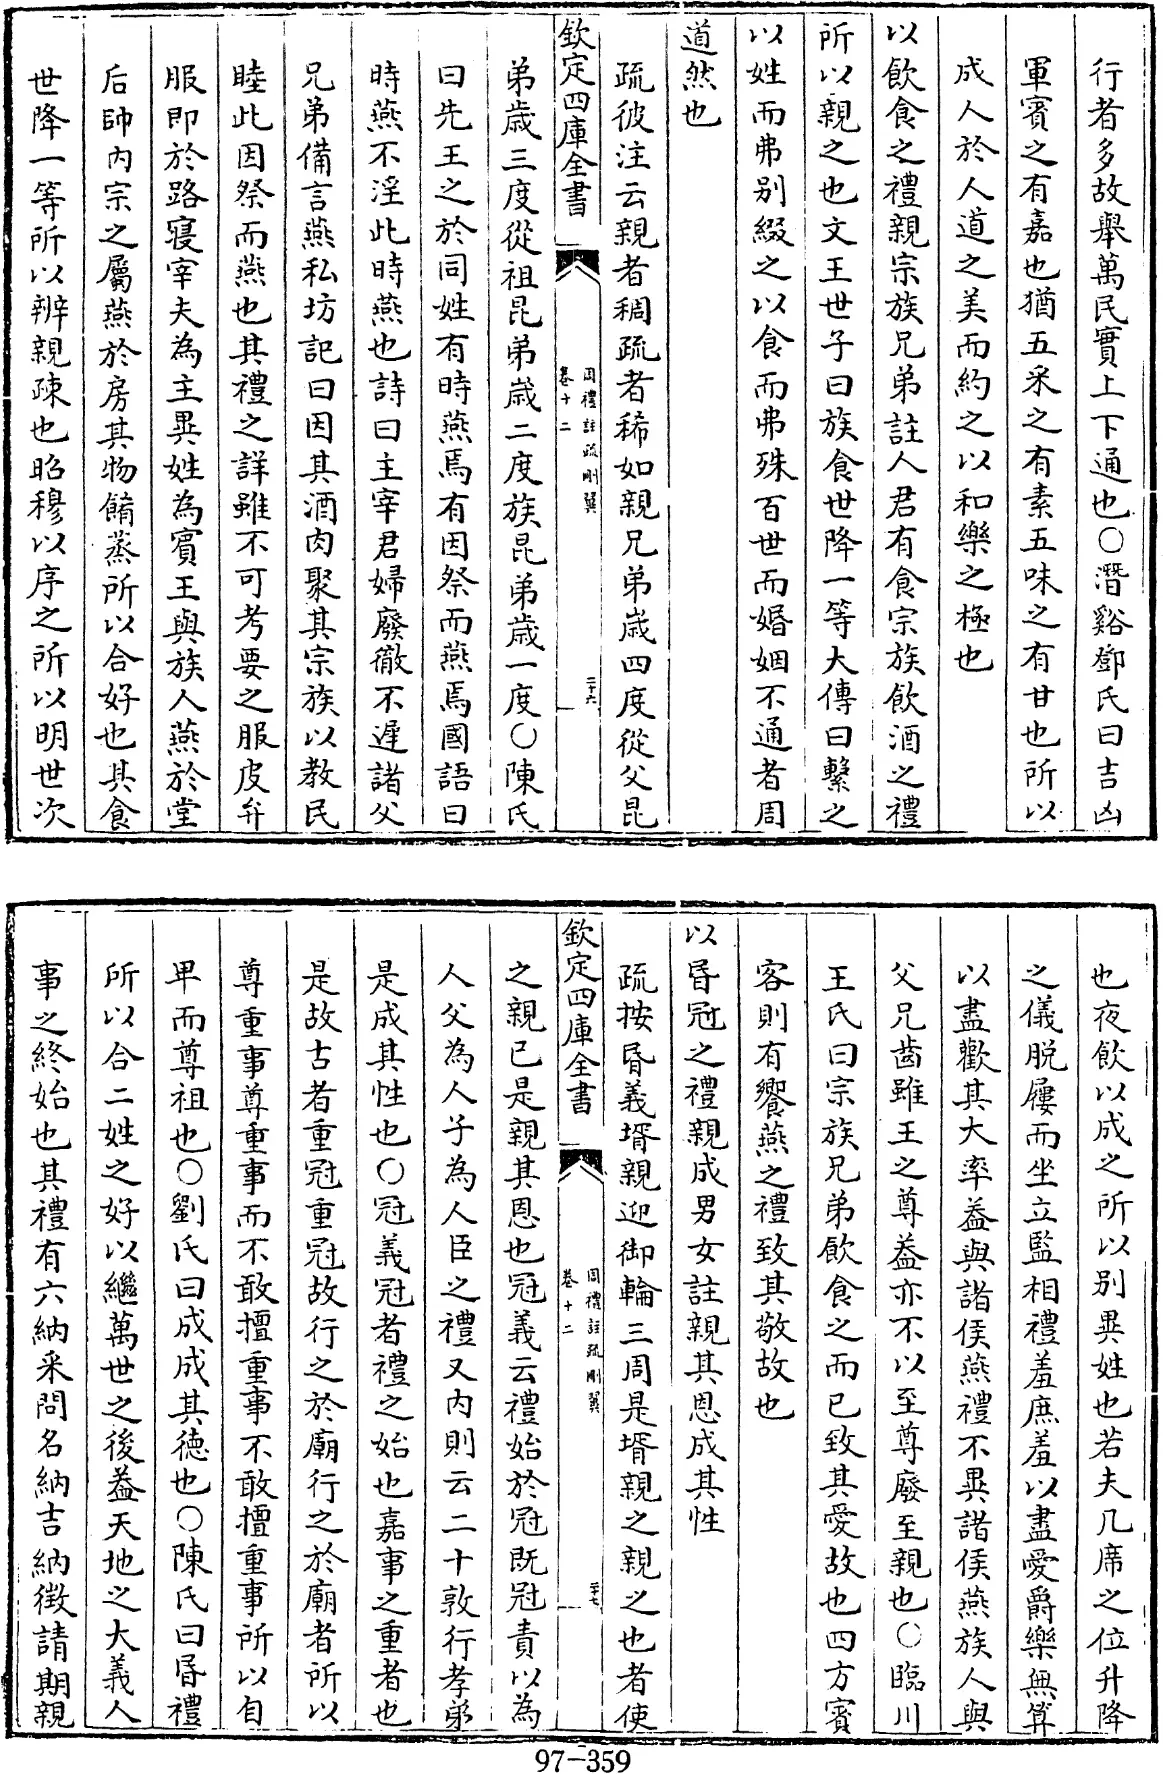 行者多故舉萬民實上下通也○潛谿鄧氏曰吉凶
軍賓之有嘉也猶五采之有素五味之有甘也所以
成人於人道之美而約之以和樂之極也
以飲食之禮親宗族兄弟註人君有食宗族飲酒之禮
所以親之也文王世子曰族食世降一等大傳曰繫之
以姓而弗别綴之以食而弗殊百世而婚姻不通者周
道然也
疏彼注云親者稠疏者稀如親兄弟歳四度從父昆
欽定四庫全書
周禮註疏刪翼
卷十二
二十六
弟歳三度從祖昆弟歳二度族昆弟歳一度○陳氏
曰先王之於同姓有時燕焉有因祭而燕焉國語曰
時燕不淫此時燕也詩曰主宰君婦廢徹不遲諸父
兄弟備言燕私坊記曰因其酒肉聚其宗族以教民
睦此因祭而燕也其禮之詳雖不可考要之服皮弁
服即於路寢宰夫為主異姓為賓王與族人燕於堂
后帥内宗之屬燕於房其物餚烝所以合好也其食
世降一等所以辨親疎也昭穆以序之所以明世次
也夜飲以成之所以别異姓也若夫几席之位升降
之儀脱屨而坐立監相禮羞庶羞以盡愛爵樂無算
以盡歡其大率葢與諸侯燕禮不異諸侯燕族人與
父兄齒雖王之尊葢亦不以至尊廢至親也○臨川
王氏曰宗族兄弟飲食之而已致其愛故也四方賓
客則有饗燕之禮致其敬故也
以昬冠之禮親成男女註親其恩成其性
疏按昬義壻親迎御輪三周是壻親之親之也者使
欽定四庫全書
周禮註疏刪翼
卷十二
二十七
之親已是親其恩也冠義云禮始於冠既冠責以為
人父為人子為人臣之禮又内則云二十敦行孝弟
是成其性也○冠義冠者禮之始也嘉事之重者也
是故古者重冠重冠故行之於廟行之於廟者所以
尊重事尊重事而不敢擅重事不敢擅重事所以自
卑而尊祖也○劉氏曰成成其德也○陳氏曰昬禮
所以合二姓之好以繼萬世之後葢天地之大義人
事之終始也其禮有六納采問名納吉納徴請期親
97-359